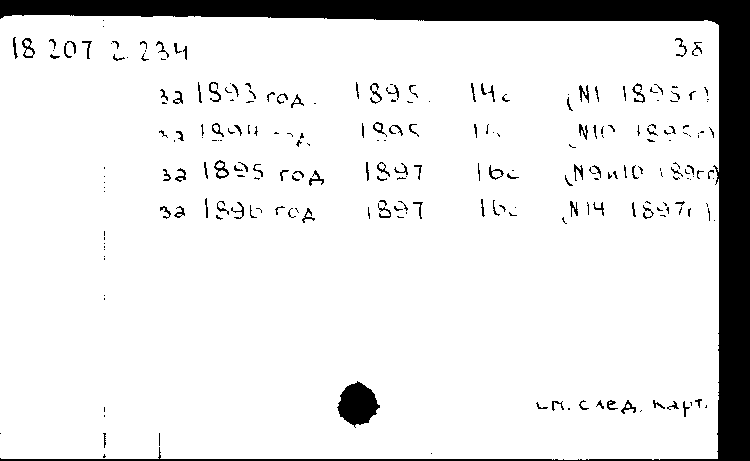 18 207 2 234 3б
за 1893 год. 1895. 14с (N1 1895г)
за 1894 год 1895 (N10 1895г)
за 1895 год 1897 16с (N9и10
за 1896 год 1897 16с (N14 1897г).
см. след. карт.